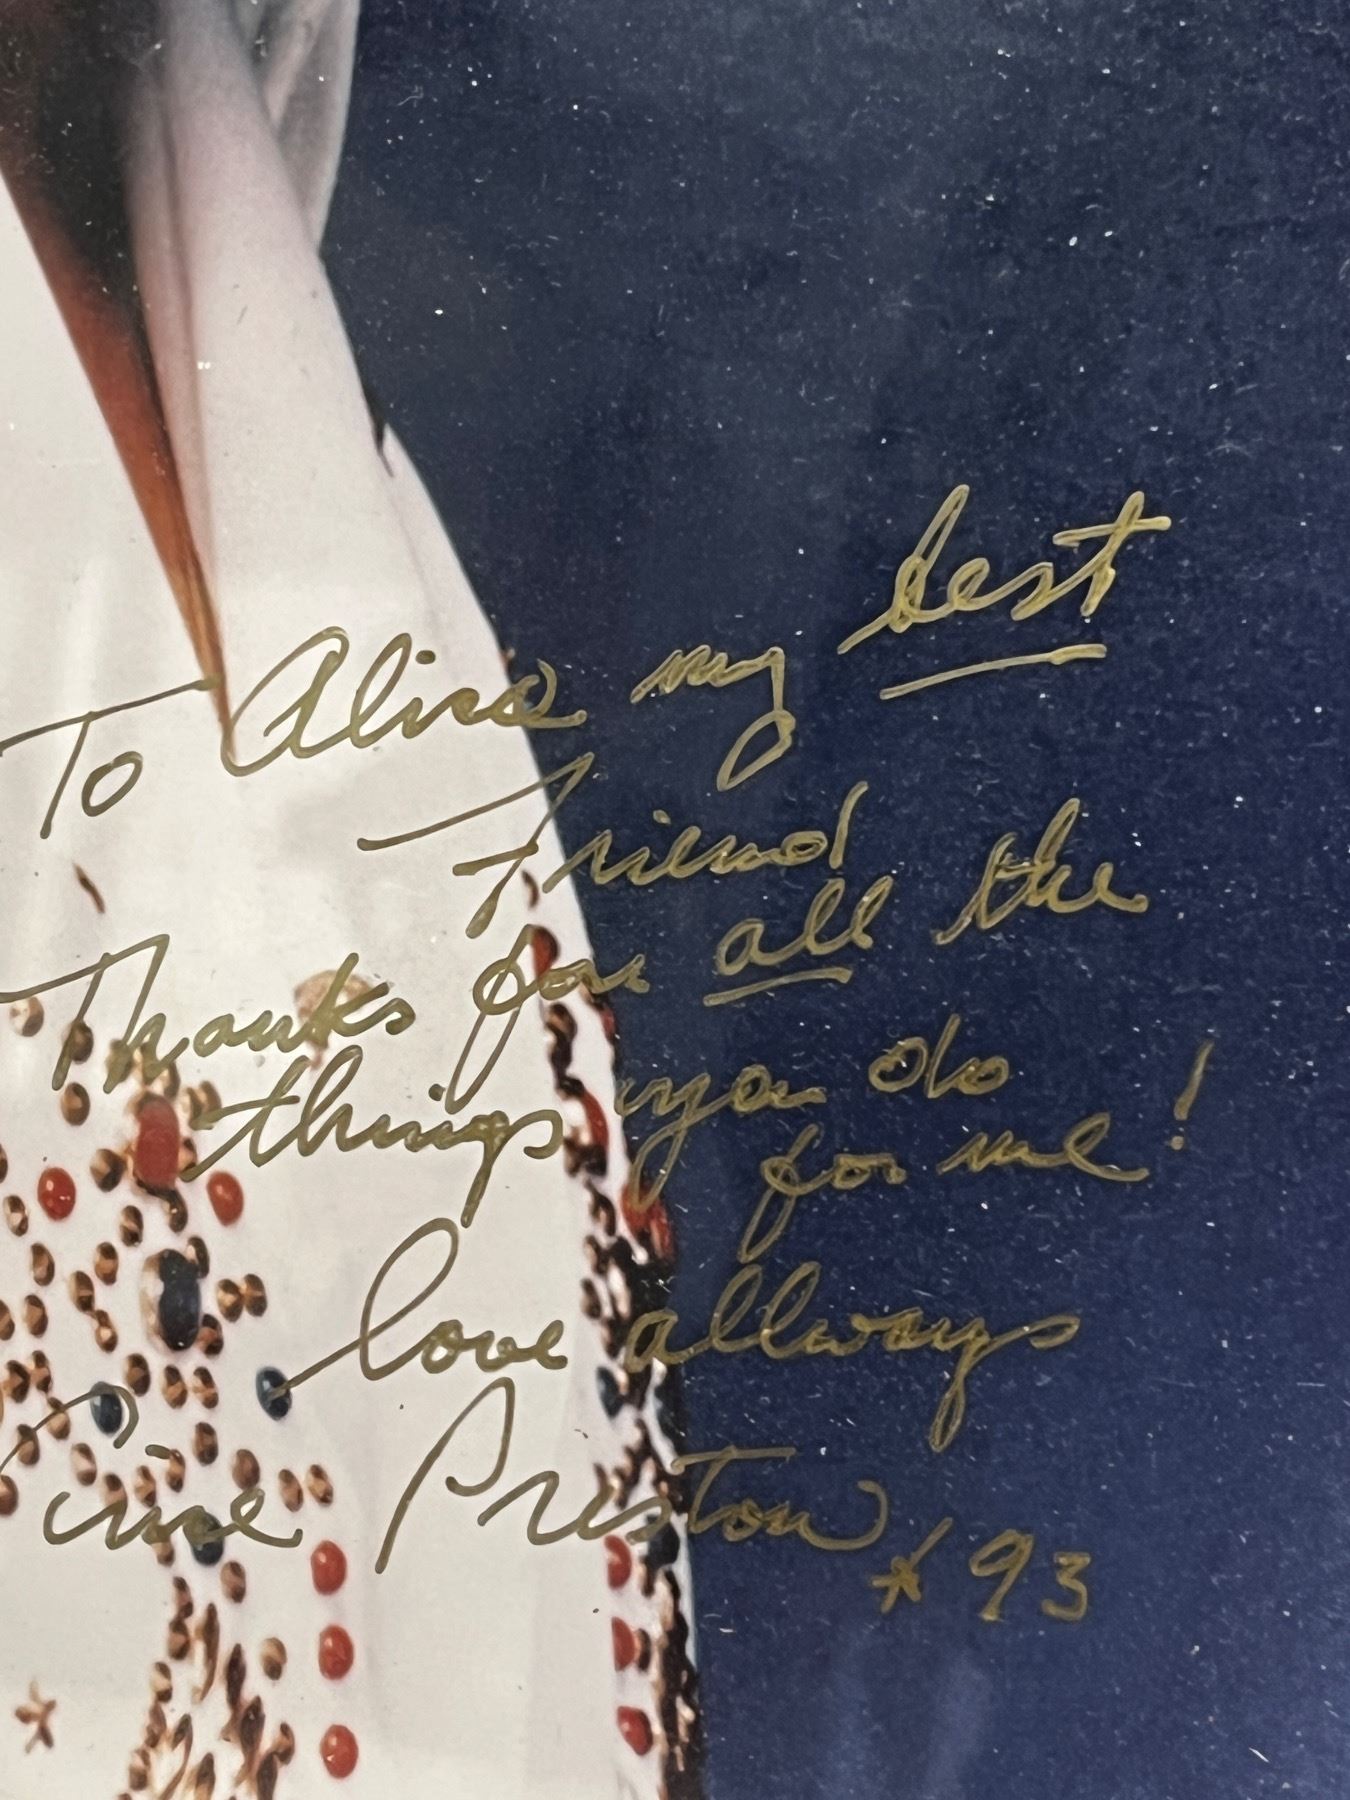 To Alisa my best
Friend
Thanks for all the
things you do
for me!
love allways
Preston
93